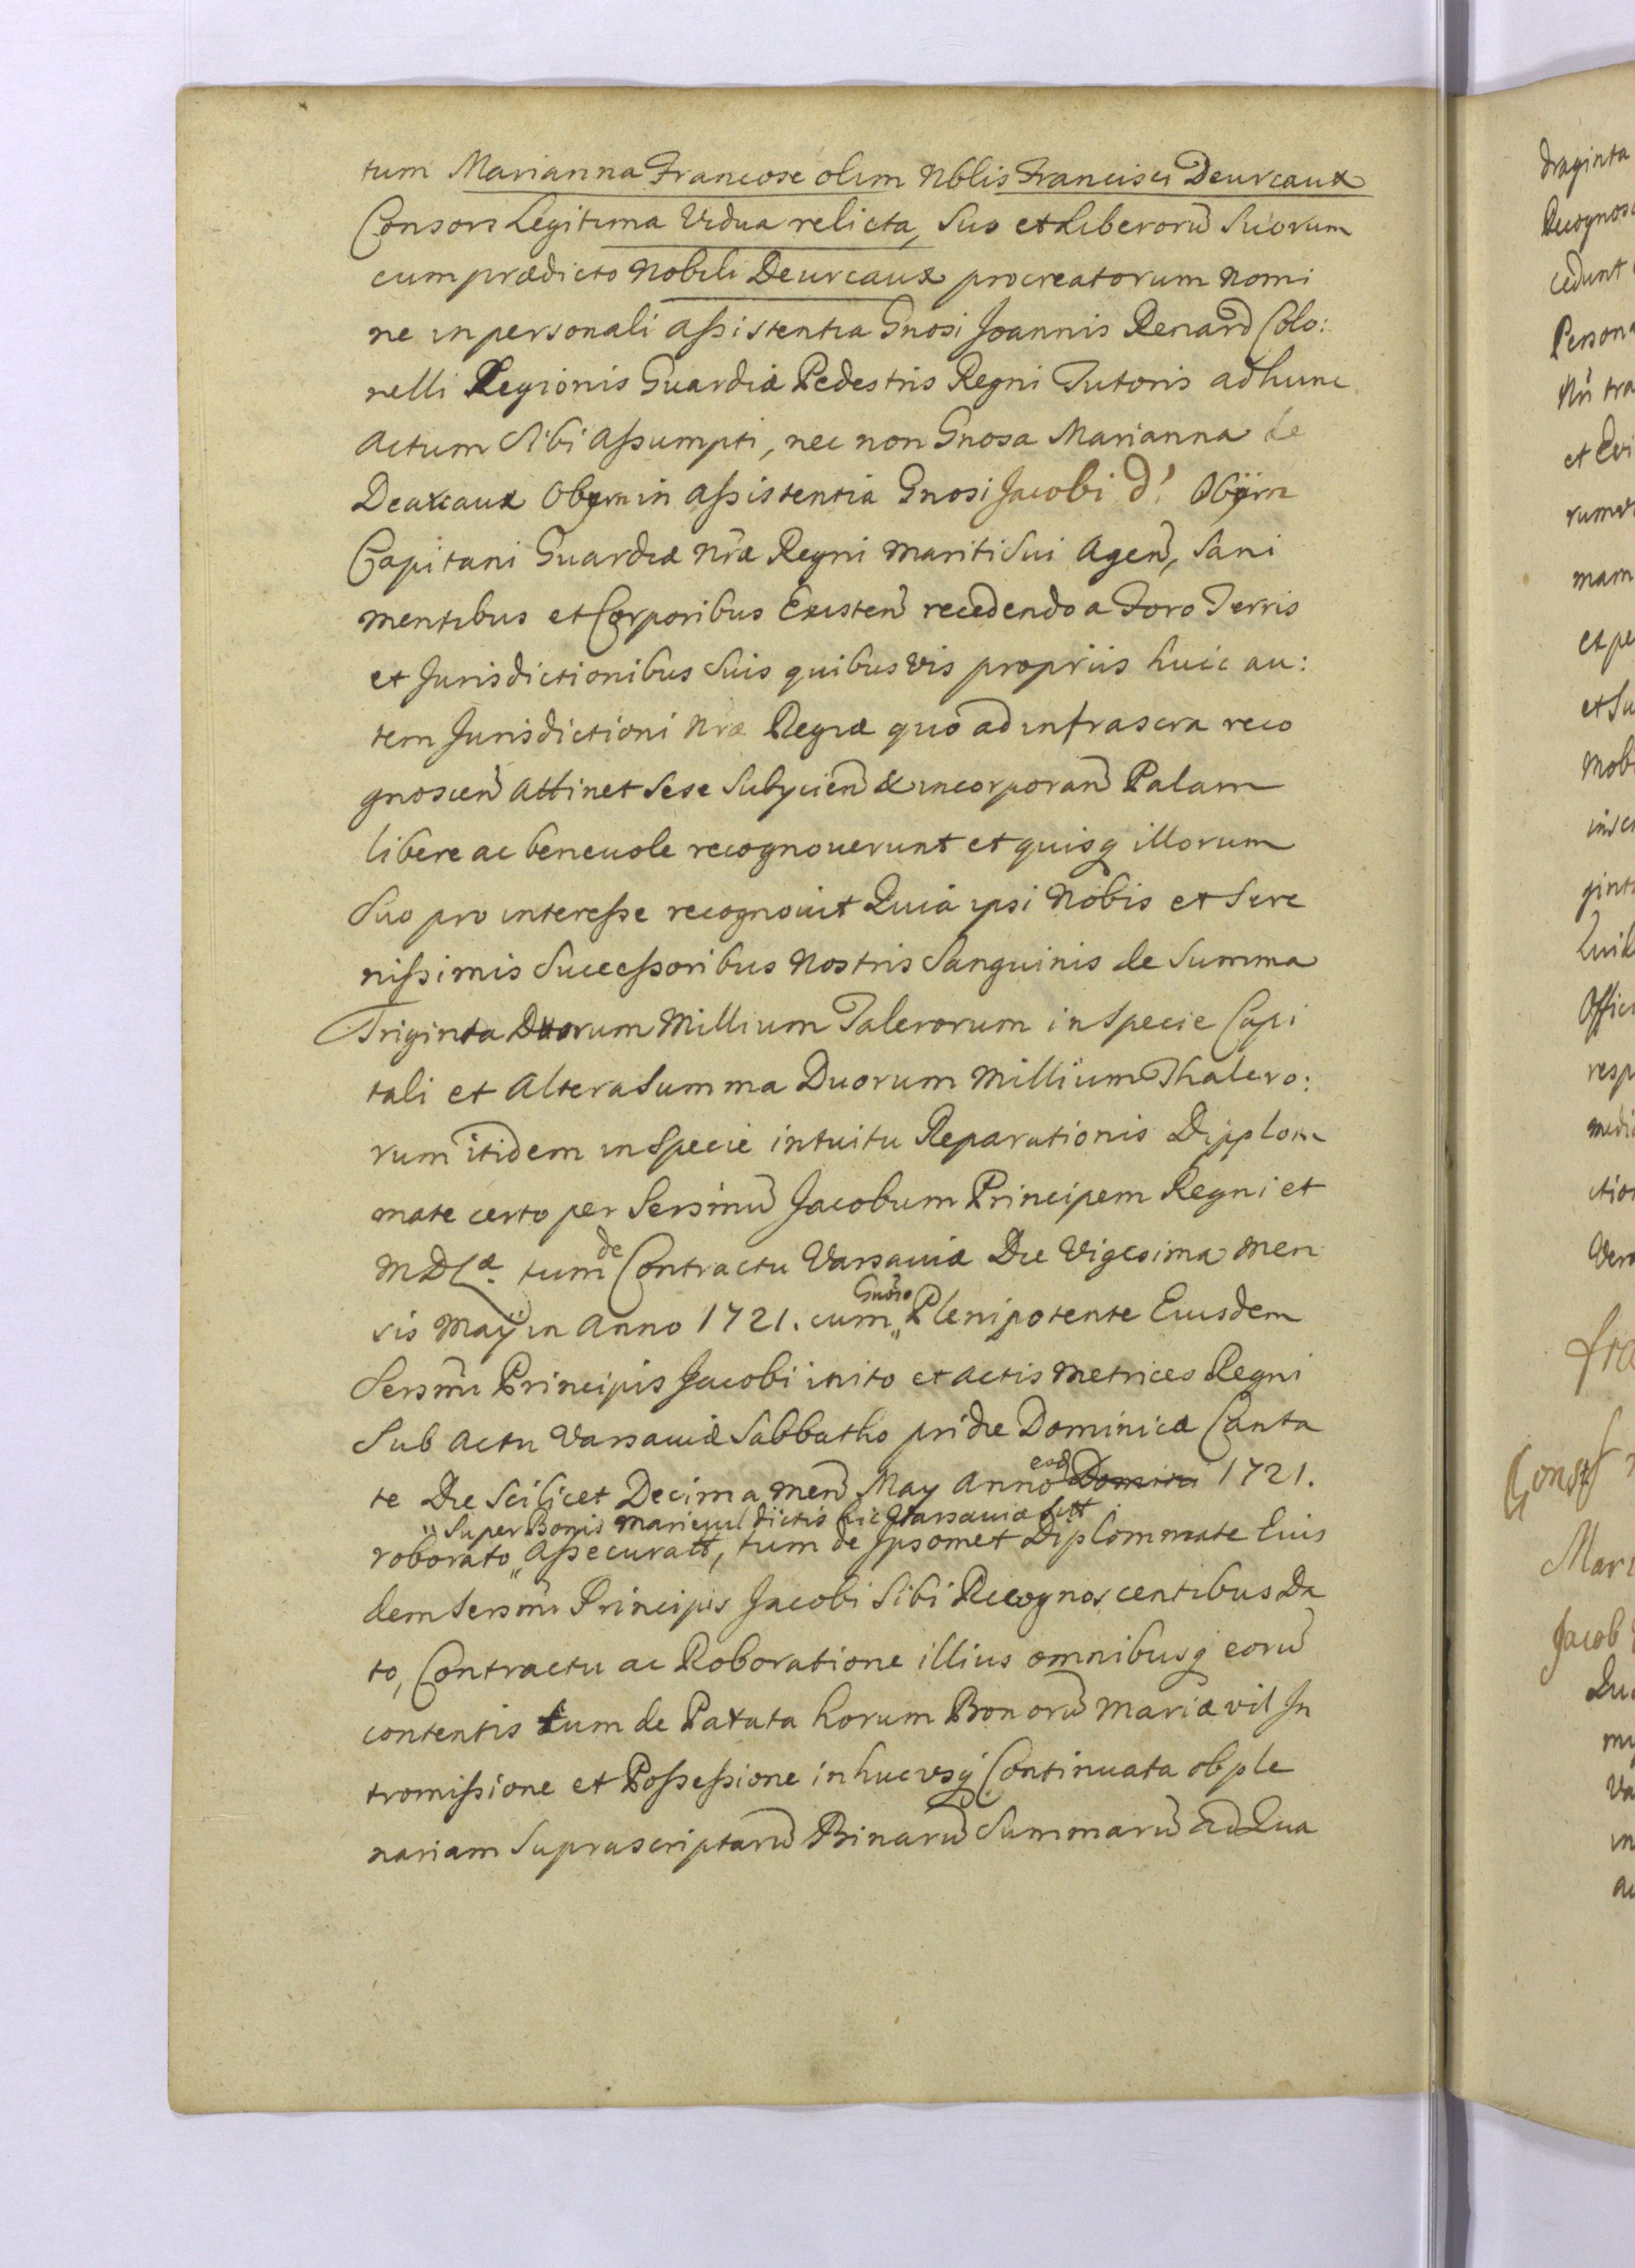 tum Marianna Francose olim Nblis Francisci Deurcaux
Consors Legitima Vidua relicta, Suo et Liberorũ Suorum
cum prædicto Nobili Deurcaux procreatorum nomi
ne in personali aßistentia Gnosi Joannis Renard Colo:
nelli Legionis Guardiæ Pedestris Regni Tutoris ad hunc
actum Sibi aßumpti, nec non Gnosa Marianna de
Deaxcaux Obyrn in aßistentia Gnosi Jacobi d' Obyrn
Capitani Guardiæ Nræ Regni Mariti Sui Agen̄, Sani
mentibus et Corporibus Existen̄ recedendo a Foro Terris
et Jurisdictionibus Suis quibusvis propriis huic au:
tem Jurisdictioni Nræ Regiæ quo ad infrascra reco
gnoscen̄ attinet Sese Subyicien̄ & incorporan̄ Palam
libere ac beneuole recognouerunt et quisq illorum
Suo pro intereße recognouit Quia ipsi Nobis et Sere
nißimis Succeßoribus Nostris Sanguinis de Summa
Triginta Duorum Millium Talerorum in Specie Capi
tali et Altera Summa Duorum Millium Thalero:
rum itidem in Specie intuitu Reparationis Dipplom
mate certo per Sersmũ Jacobum Principem Regni et
MDLæ. tum de Contractu Varsaviæ Die Vigesima Men
sis Maÿ in Anno 1721. cum Gnōso Plenipotente Eiusdem
Sersmi Principis Jacobi inito et actis Metrices Regni
Sub Actu Varsaviæ Sabbatho pridie Dominicæ Canta
te Die Scilicet Decima Men̄ May Anno eod Domini 1721.
Super Bonis Marievil dictis hic Varsaviæ sitt
roborato aßecuratt, tum de Ipsomet Diplommate Eius
dem Sersmi Principis Jacobi Sibi Recognoscentibus Da
to, Contractu ac Roboratione illius omnibusq eorũ
contentis tum de Patata horum Bonorũ Mariævil In
tromißione et Poßeßione in hucusq Continuata ob ple
nariam Suprascriptarũ Binarũ Summarũ ad Qua
draginta
cedunt
Persona
et Evi
mam
et pe
et Su
Mobi
resp
Const
Mari
Jacob